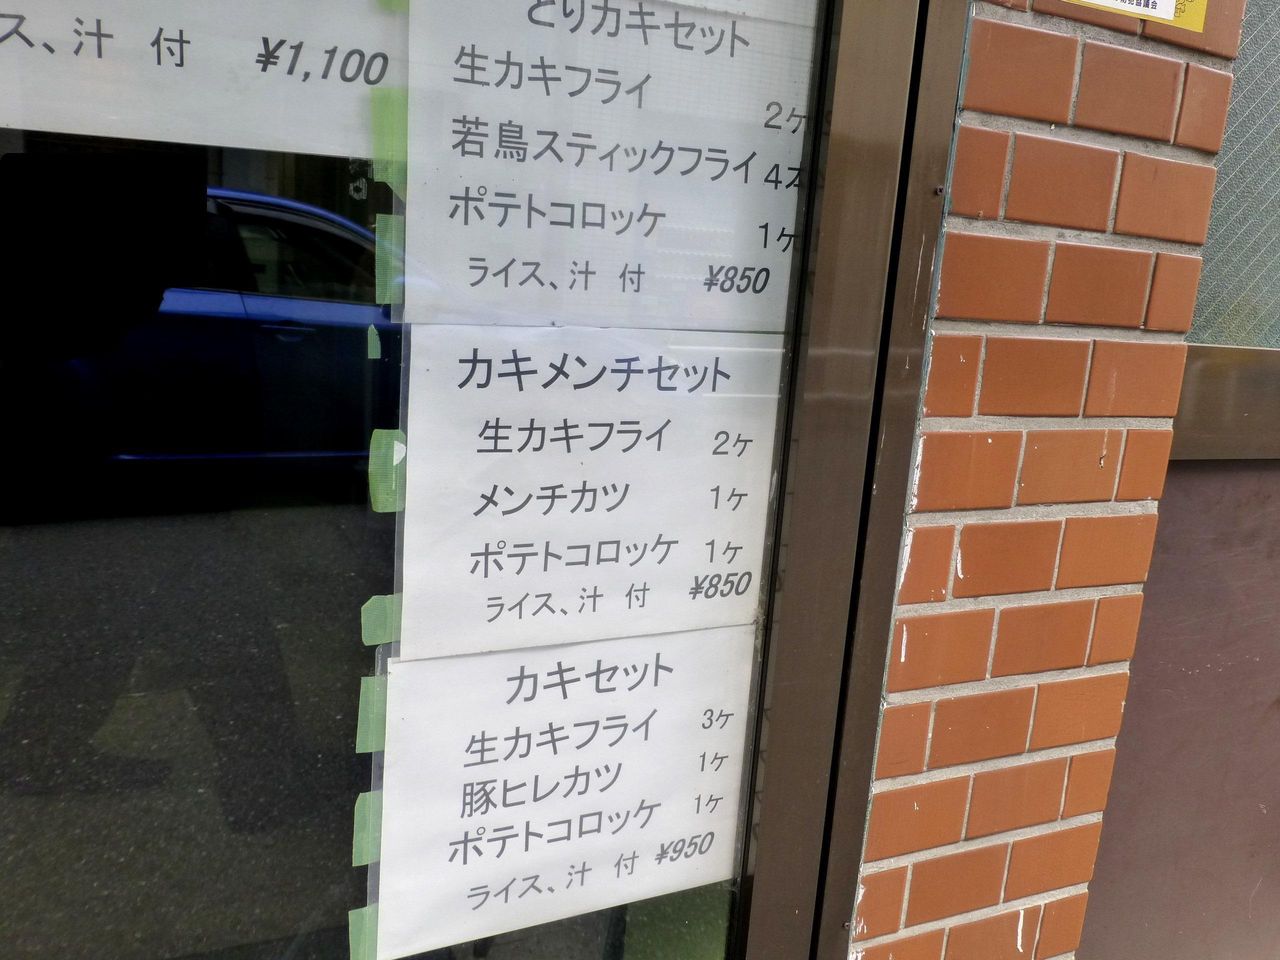 ス、汁 付 ¥1,100
とりカキセット
生カキフライ 2ケ
若鳥スティックフライ 4本
ポテトコロッケ 1ケ
ライス、汁 付 ¥850
カキメンチセット
生カキフライ 2ケ
メンチカツ 1ケ
ポテトコロッケ 1ケ
ライス、汁 付 ¥850
カキセット
生カキフライ 3ケ
豚ヒレカツ 1ケ
ポテトコロッケ 1ケ
ライス、汁 付 ¥950